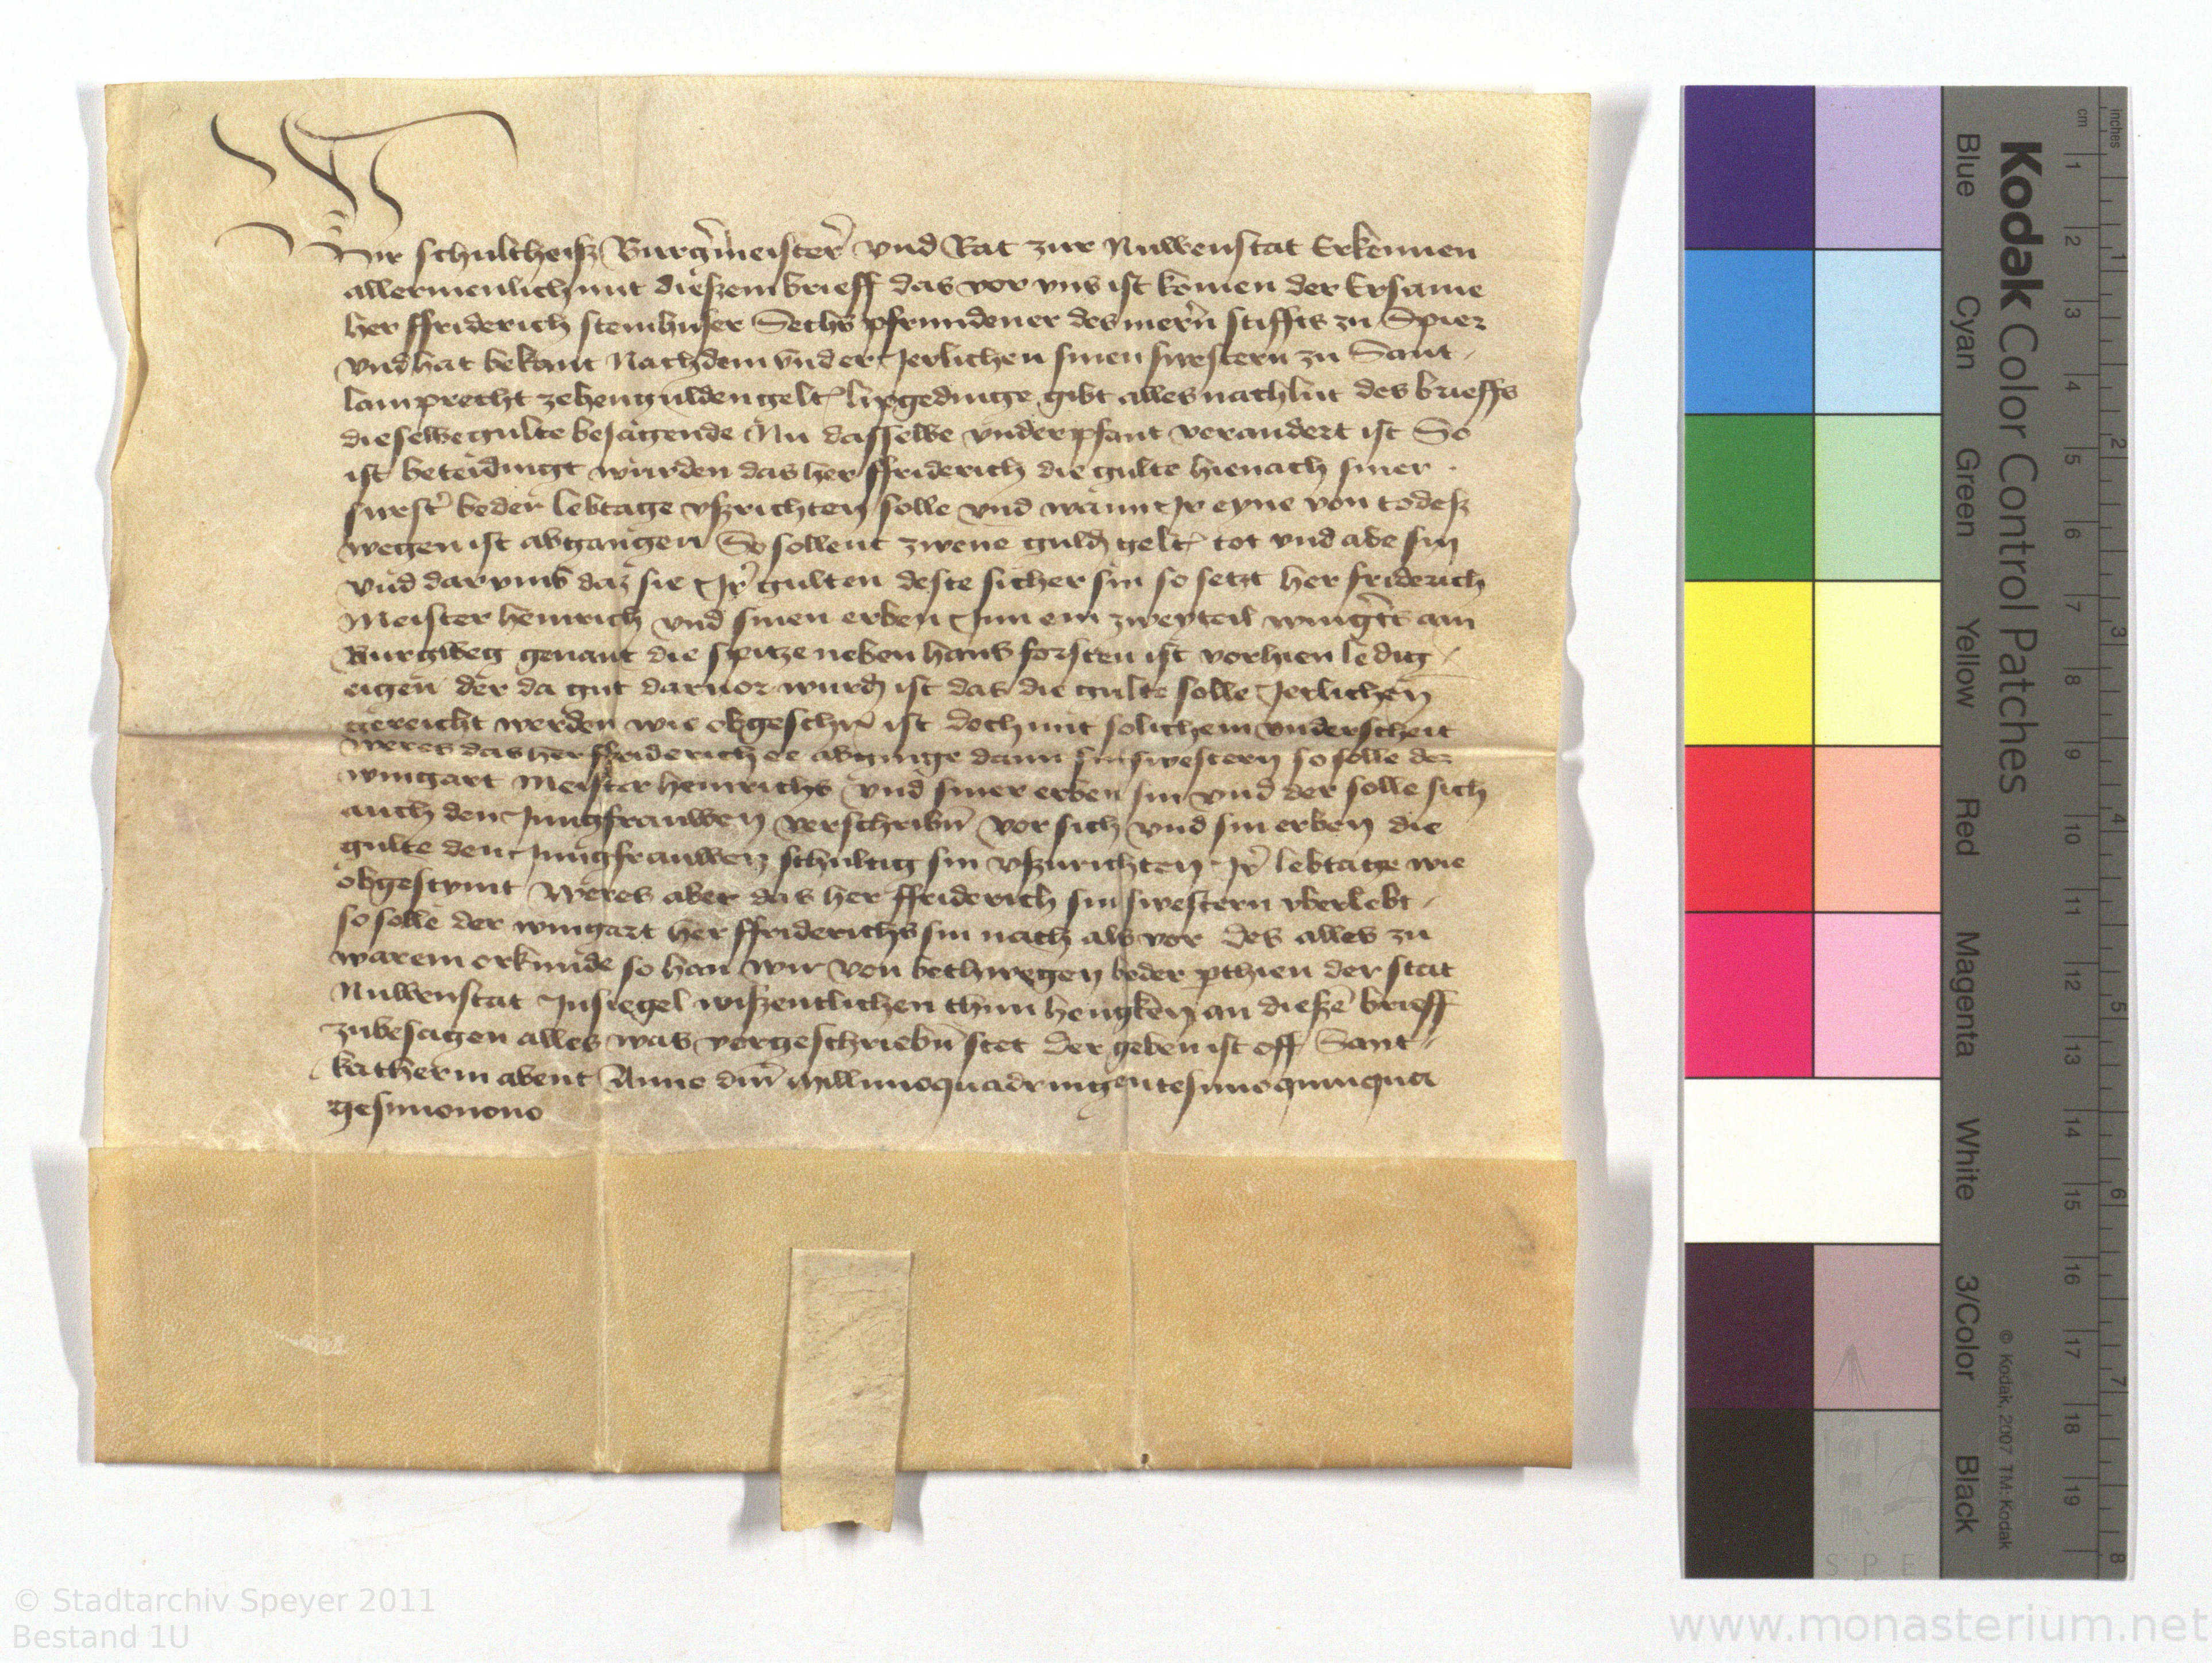 Wir schultheisz Burg̃meister̃ vnd Rat zur Nuwenstat Erkennen
allermenlich mit dieszem brieff das vor vns ist komen der Ersame
her ffriderich steinhuser Sechs pfrundener des mer̃n stiffts zu Spier
vnd hat bekant Nachdem vnd er Jerlichen sinen swestern zu Sant
lamprecht zehen gulden gelt lipgedinge gibt alles nach lut des brieffs
dieselbe gulte besagende Nu dasselbe vnderpfant verandert ist So
ist beteidingt wurden das her ffriderich die gulte hienach siner
swest̃ beder lebtage vszrichten solle vnd wann Jr eyne von todesz
wegen ist abgangen So sollent zwene guld̃ gelt tot vnd abe sin
vnd darvmb daz sie Jr̃ gulten deste sicher sin so setzt her friderich
Meister heinrich vnd sinen erben Jnn ein zweyteil wingt̃s am
Burgweg genant die spitze neben hans forsten ist vorhien ledig
eigen der da gut darvor wurd̃ ist das die gulte solle Jerlichen
gereicht werden wie obgeschr̃ ist doch mit solichem vnderscheit
weres das her ffriderich ee abginge dann sin swestern so solle der
wingart meister heinrichs vnd siner erben sin vnd der solle sich
auch den Jungfrauwen verschribñ vor sich vnd sin erben die
gulte den Jungfrauwen schultig sin vszurichten Jr̃ lebtage wie
obgestymt Weres aber das her ffriderich sin swestern vberlebt
so solle der wingart her ffriderichs sin nach als vor des alles zu
warem orkunde so han wir von beth wegen beder pthien der stat
Nuwenstat Jnsiegel wiszentlichen thun hengken an diesz̃e brieff
zubesagen alles was vorgeschriebñ stet Der geben ist off Sant
katherin abent Anno dm̃ Millimoquadringentesimoquinqua
gesimonono
Kodak Color Control Patches
Blue Cyan Green Yellow Red Magenta White 3/Color Black
© Kodak, 2007 TM: Kodak
cm 1 2 3 4 5 6 7 8 9 10 11 12 13 14 15 16 17 18 19
inches 1 2 3 4 5 6 7 8
S P E
© Stadtarchiv Speyer 2011
Bestand 1U
www.monasterium.net